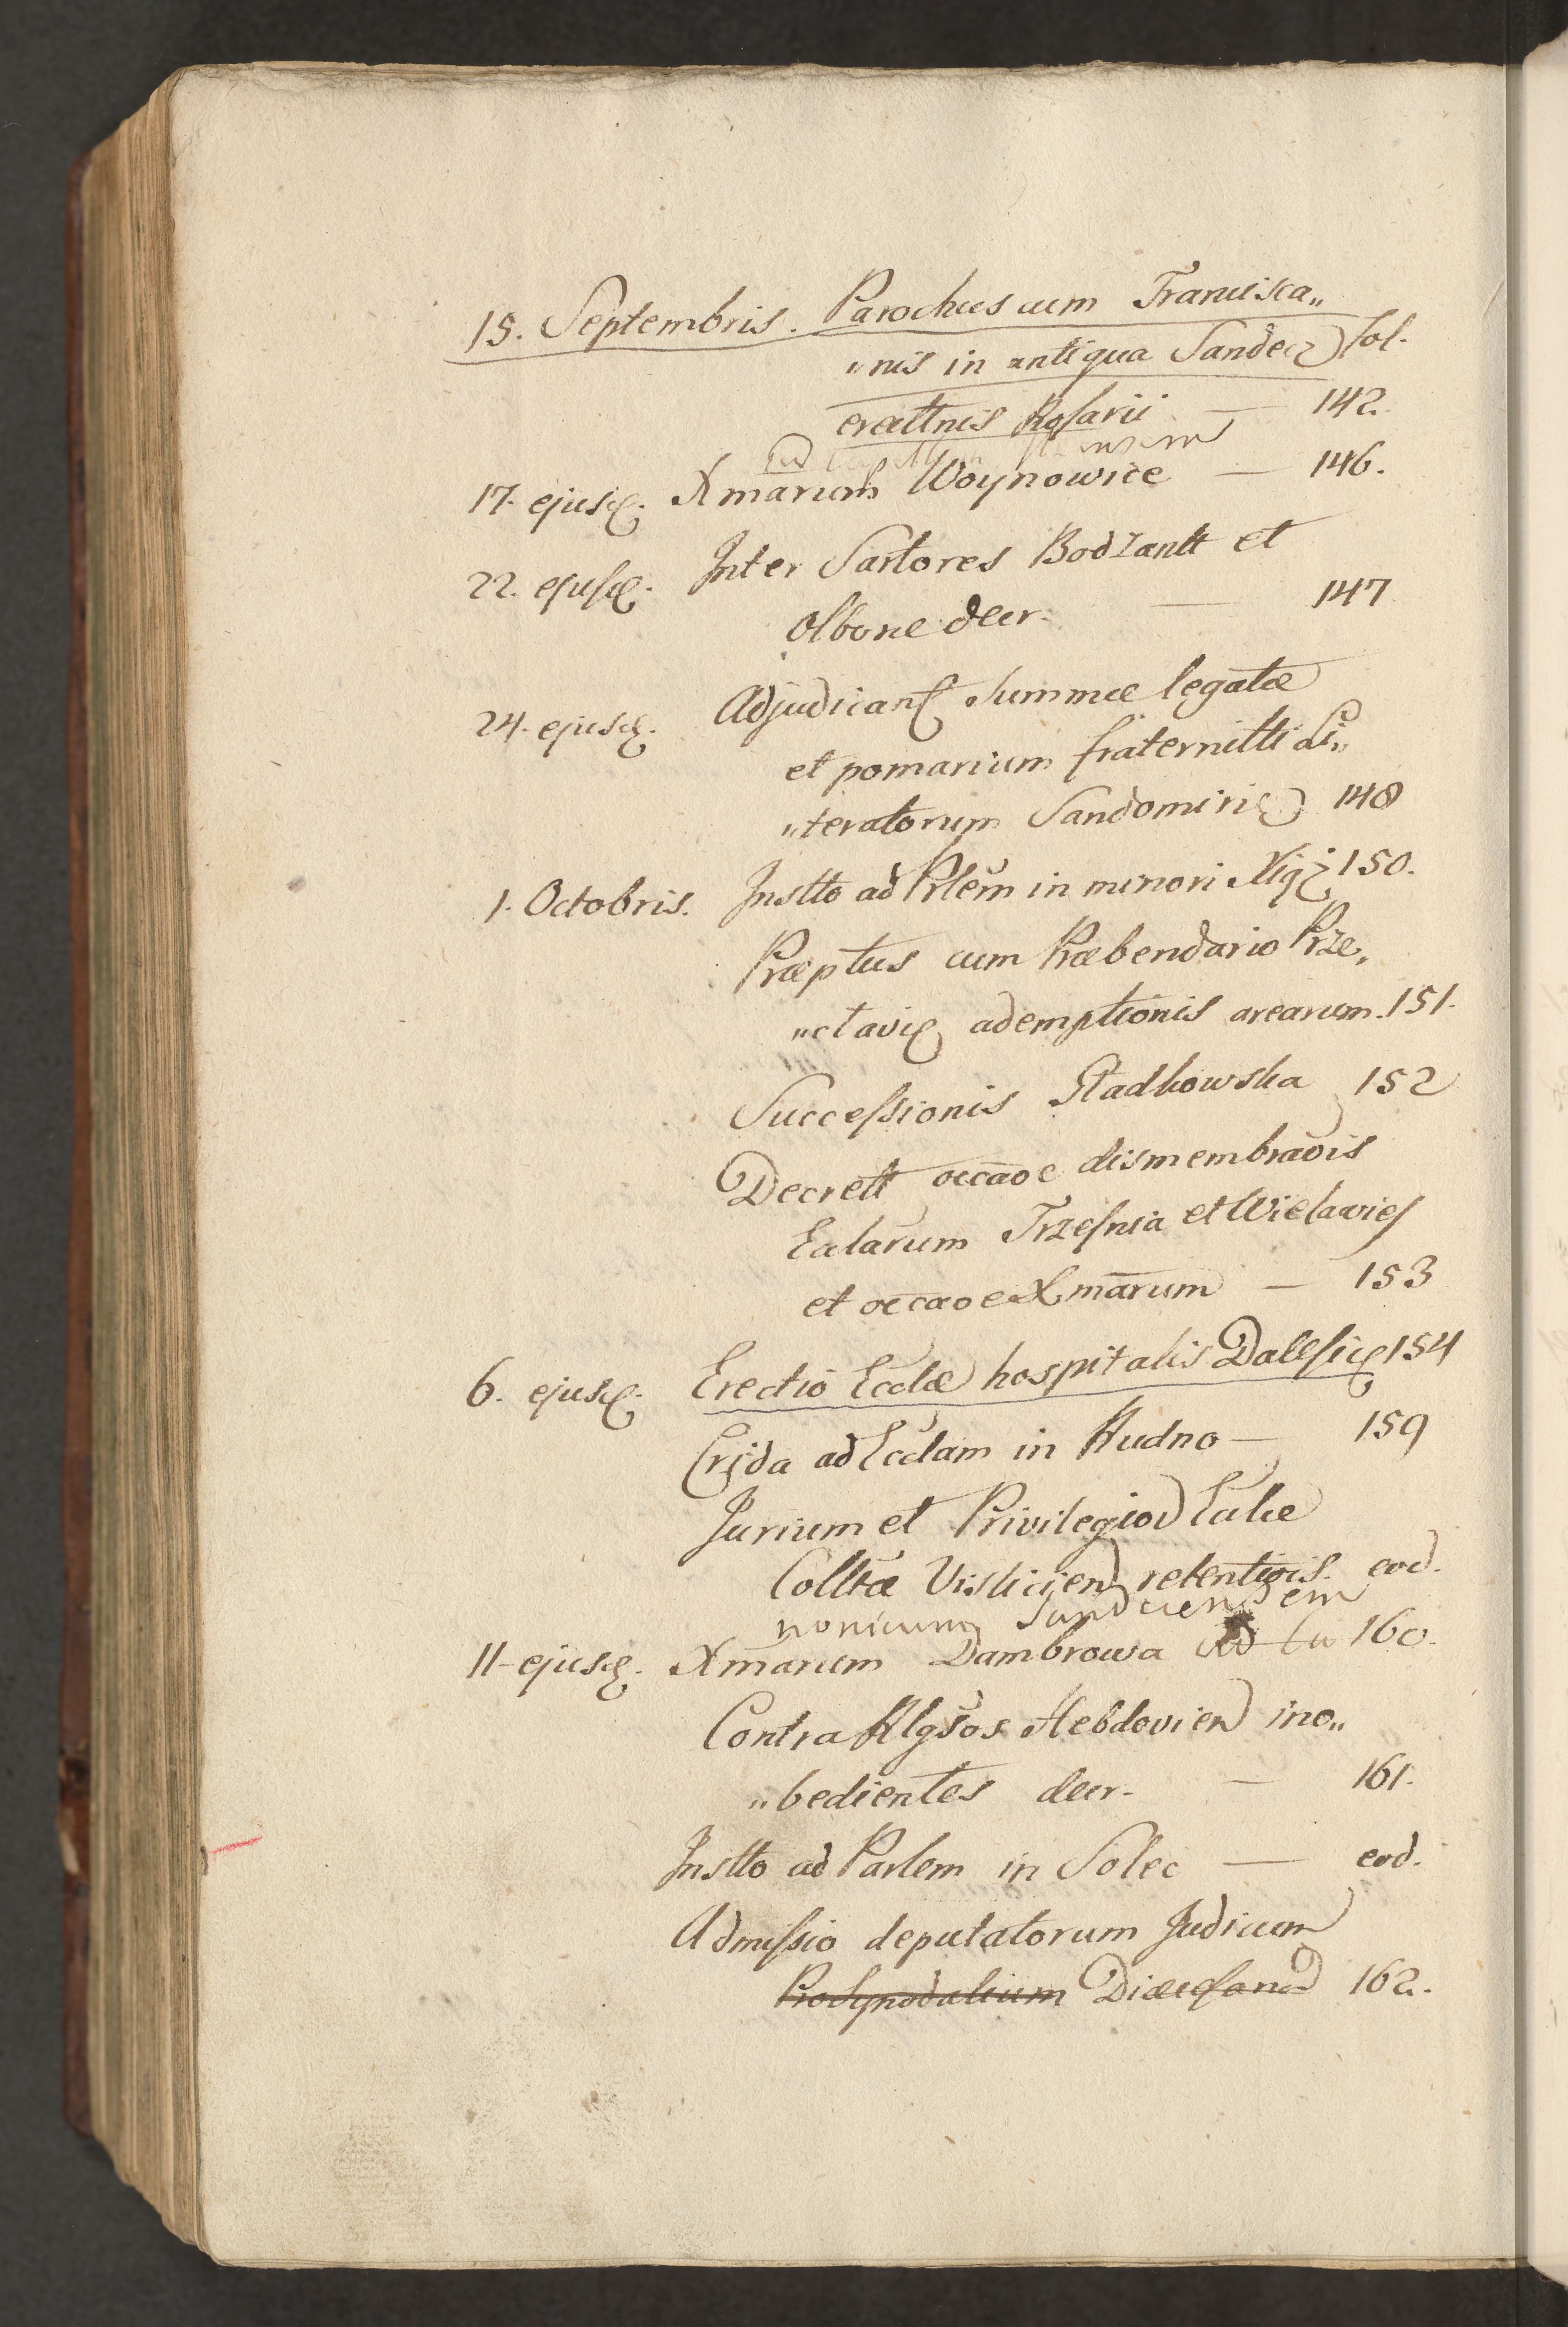 15. Septembris. Parochus cum Francisca„
„nis in antiqua Sandec) fol.
erectnis Rosarii — 142.
ad
17. ejusd. Xmarum Woynowice — 146.
22. ejusd. Inter Sartores Bodzantt et
Olbone decr. — 147
24. ejusd. Adjudican summæ legatæ
et pomarium fraternitti Li„
„teratorum Sandomirie 148
1. Octobris. Instto ad Prlem in minori 150.
Præptus cum Præbendario Prze„
„clavie ademptionis arearum. 151.
Successionis Stadkowska 152
Decrett occaoe dismembraois
Ecclarum Trzesnia et Wielawies
et occaoe Xmarum — 153
6. ejusd. Erectio Ecclæ hospitalis Dalesic 154
Crida ad Ecclam in Rudno — 159
Jurium et Privilegior Eccliæ
Colltæ Visliciien retentiois. eod.
nonicum Sandciensem
11. ejusd. Xmarum Dambrowa ad Ca 160.
Contra Rlgsos Hebdovien ino„
„bedientes decr. — 161.
Instto ad Parlem in Solec — eod.
Admissio deputatorum Judicum
ProSynodalium Diæcesanor 162.